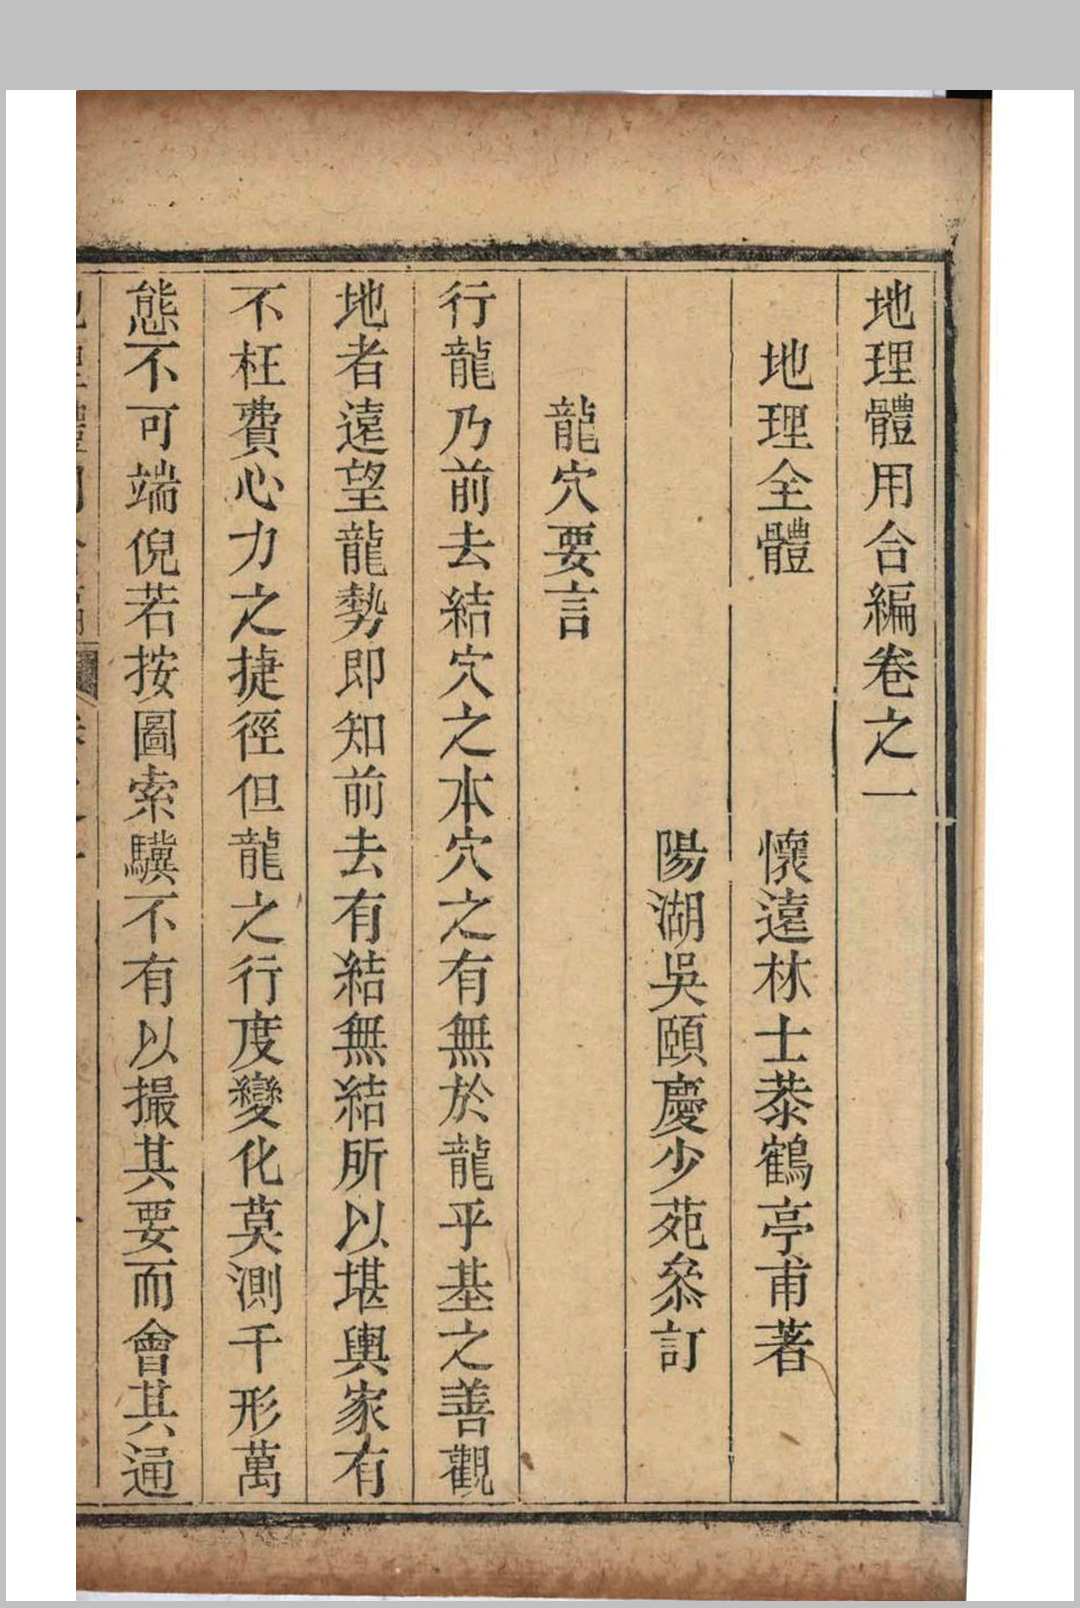 地理體用合編卷之一
地理全體 懷遠林士恭鶴亭甫著
陽湖吳頤慶少苑叅訂
龍穴要言
行龍乃前去結穴之本穴之有無於龍乎基之善觀
地者遠望龍勢即知前去有結無結所以堪輿家有
不枉費心力之捷徑但龍之行度變化莫測千形萬
態不可端倪若按圖索驥不有以撮其要而會其通